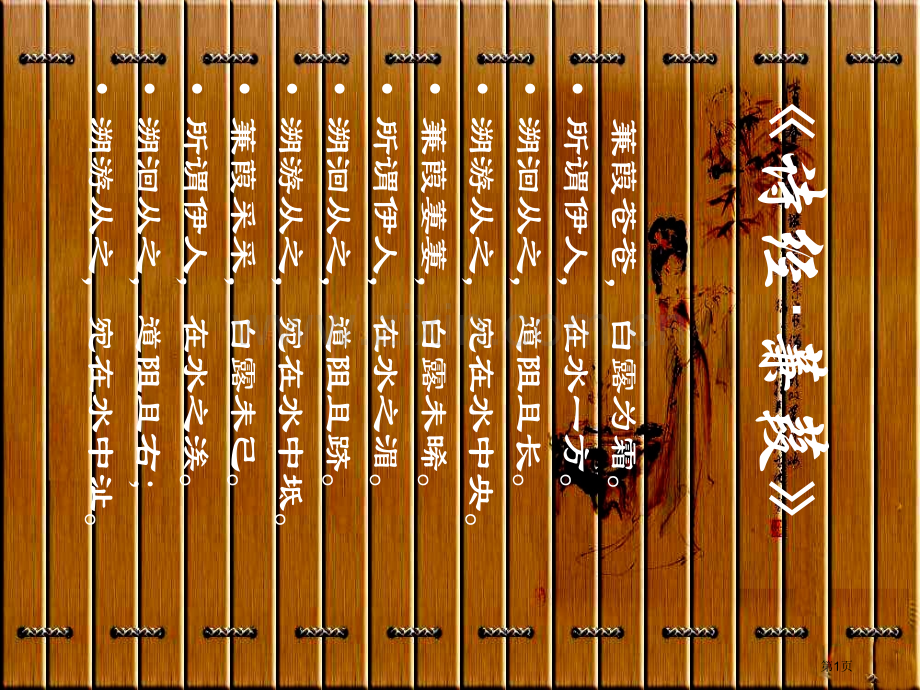 《诗经·蒹葭》
蒹葭苍苍， 白露为霜。
• 所谓伊人， 在水一方。
• 溯洄从之， 道阻且长。
• 溯游从之， 宛在水中央。
• 蒹葭萋萋， 白露未晞。
• 所谓伊人， 在水之湄。
• 溯洄从之， 道阻且跻。
• 溯游从之， 宛在水中坻。
• 蒹葭采采， 白露未已。
• 所谓伊人， 在水之涘。
• 溯洄从之， 道阻且右；
• 溯游从之， 宛在水中沚。
第1页